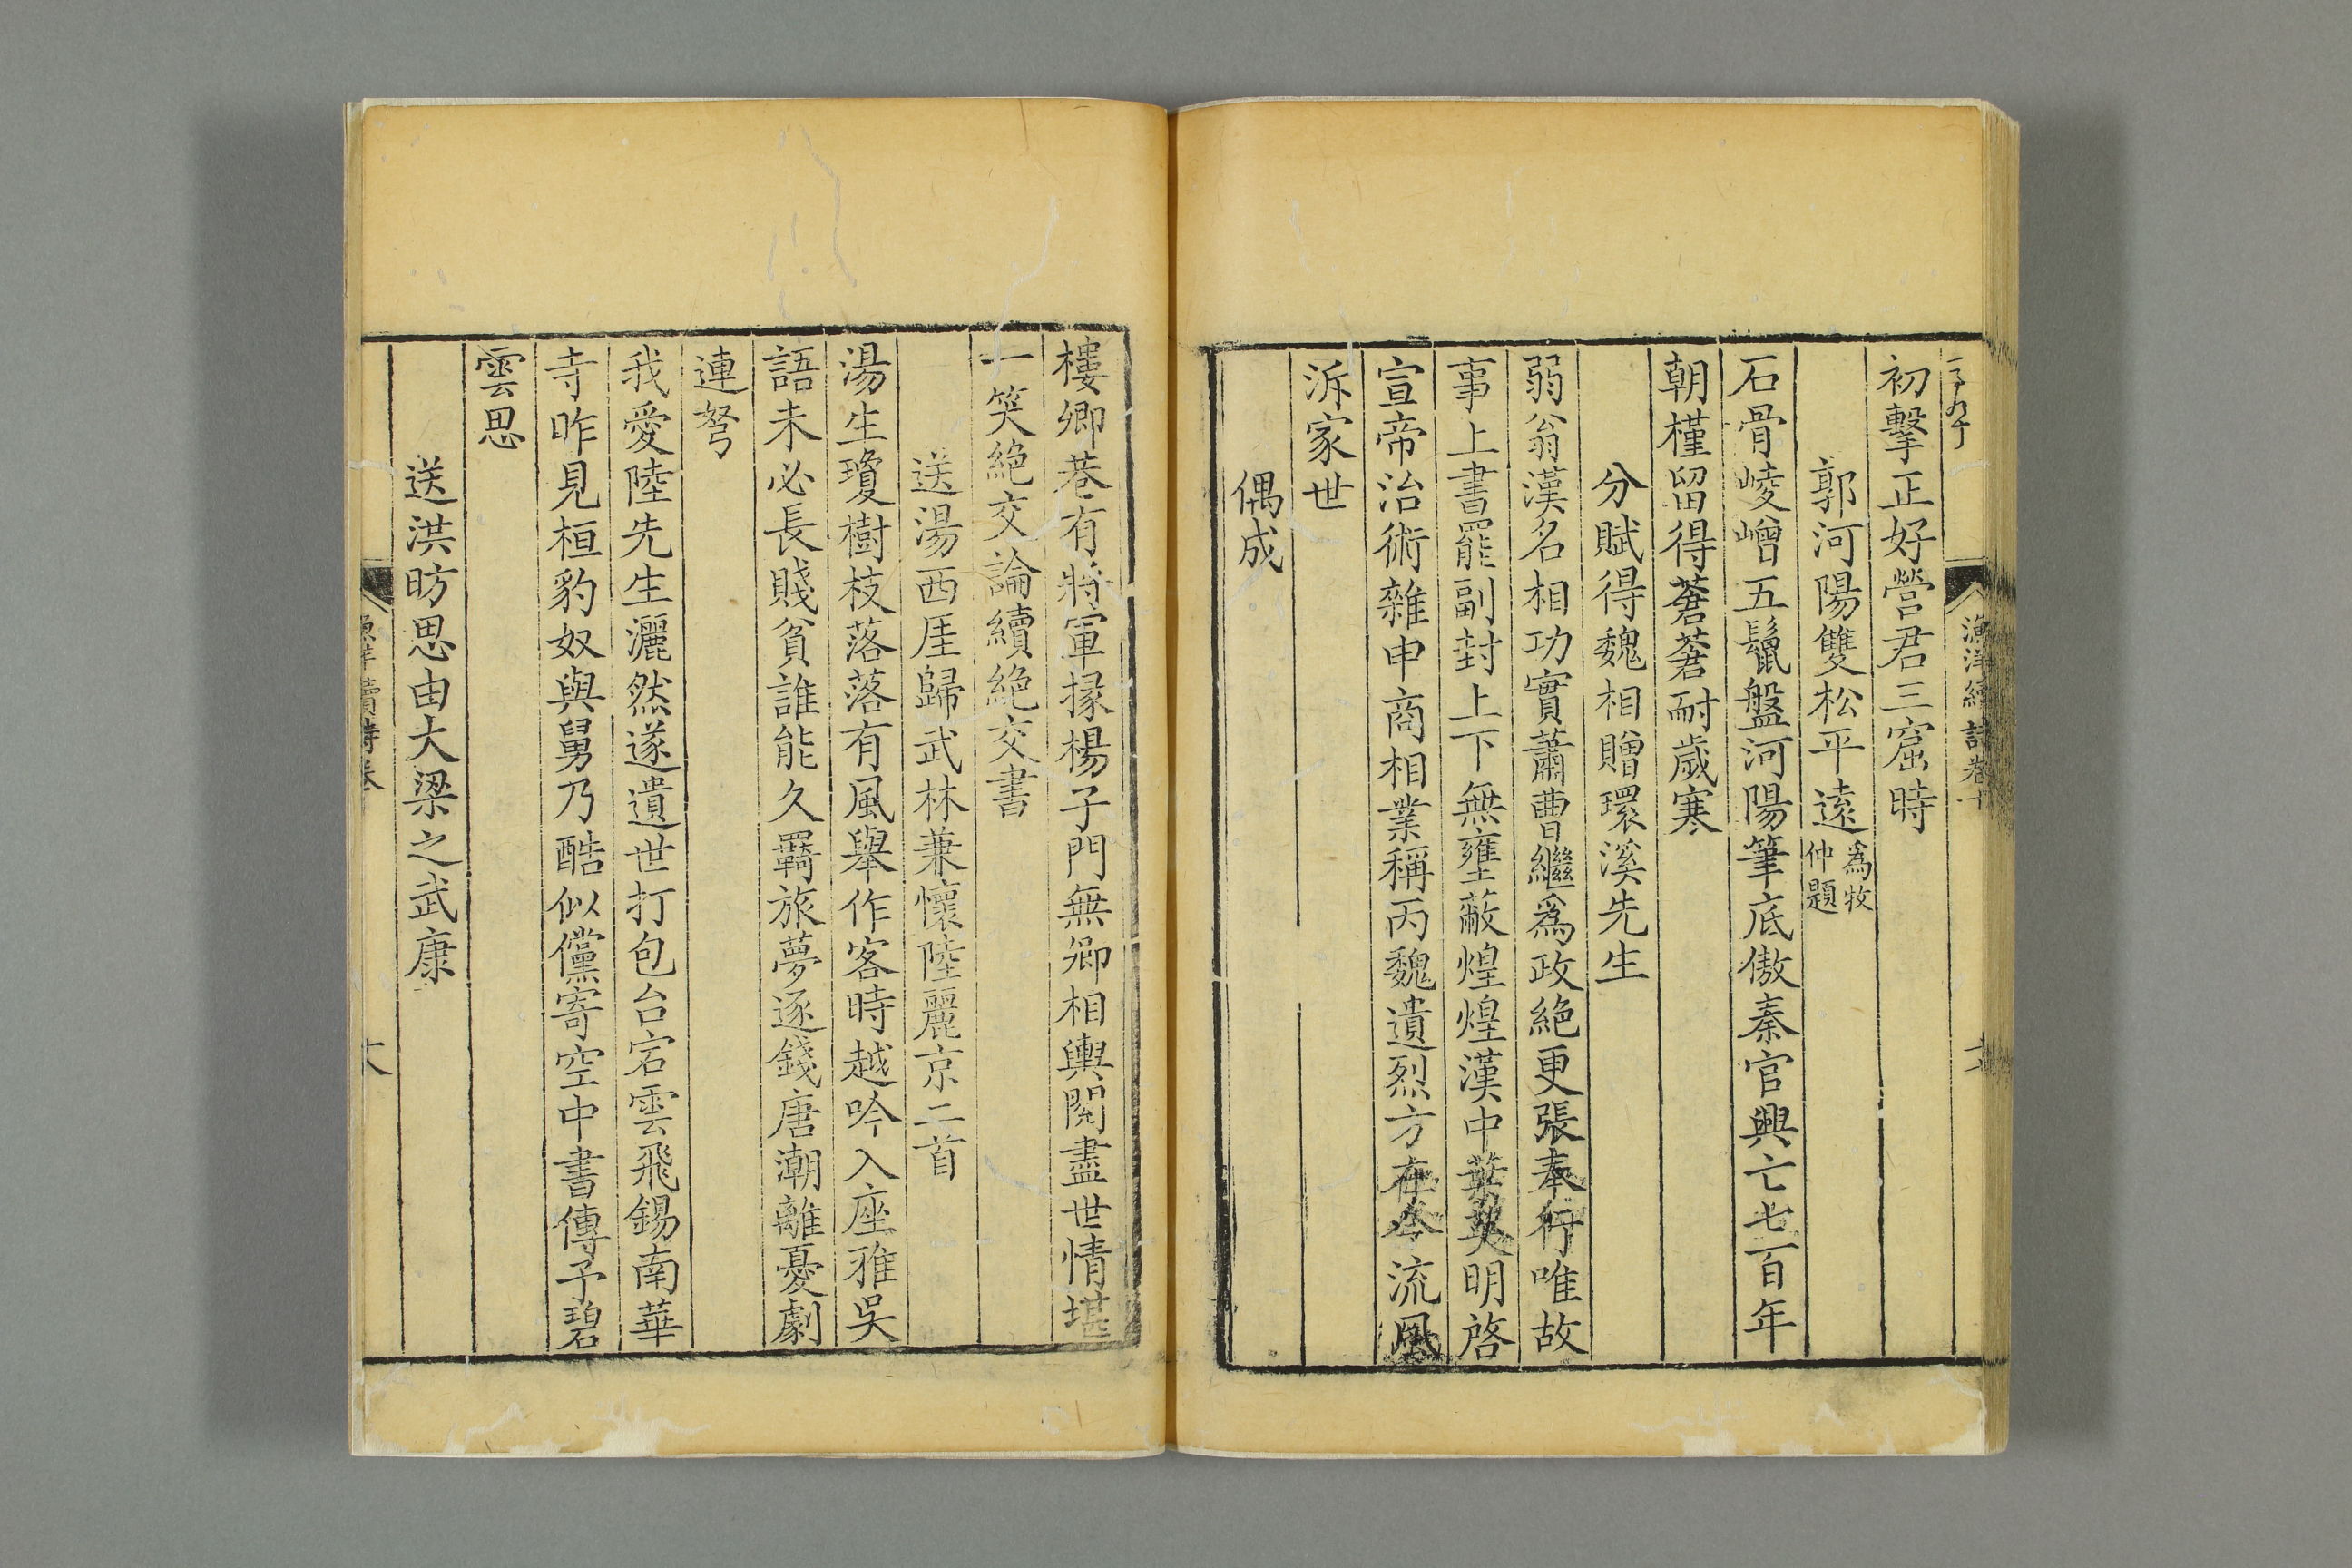 漁洋續詩卷十
初擊正好營君三窟時
郭河陽雙松平遠為牧仲題
石骨崚嶒五鬣盤河陽筆底傲秦官興亡七百年
朝槿留得蒼蒼耐歲寒
分賦得魏相贈環溪先生
弱翁漢名相功實蕭曹繼為政絕更張奉行唯故
事上書罷副封上下無壅蔽煌煌漢中葉英明啓
宣帝治術雜申商相業稱丙魏遺烈方在今流風
泝家世
偶成
樓卿巷有將軍掾楊子門無卿相輿閱盡世情堪
一笑絕交論續絕交書
送湯西厓歸武林兼懷陸麗京二首
湯生瓊樹枝落落有風舉作客時越吟入座雅吳
語未必長賤貧誰能久羇旅夢逐錢唐潮離憂劇
連弩
我愛陸先生灑然遂遺世打包台宕雲飛錫南華
寺昨見桓豹奴與舅乃酷似儻寄空中書傳予碧
雲思
送洪昉思由大梁之武康
漁洋續詩卷